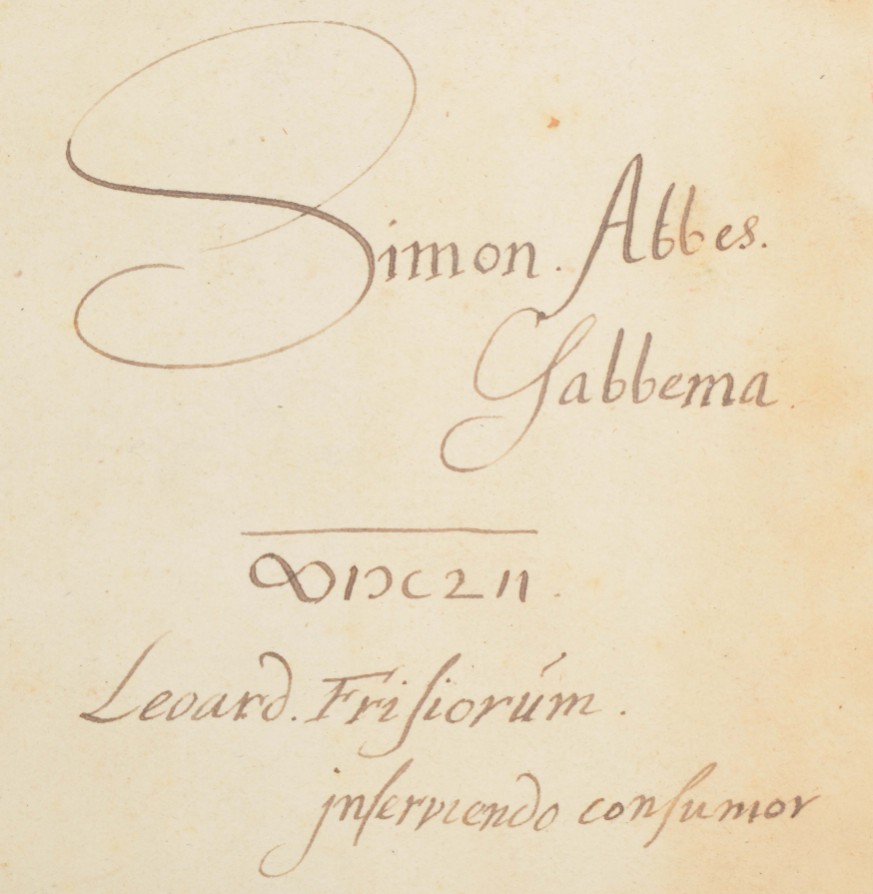 Simon. Abbes.
Gabbema.
ↀIↃCLII.
Leoard. Frisiorúm.
jnserviendo consumor